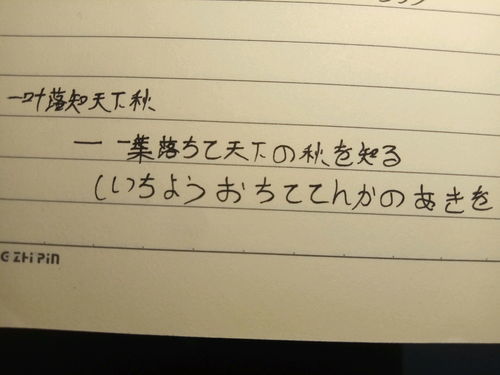 一叶落知天下秋
一 一葉落ちて天下の秋を知る
(いちようおちててんかのあきを
G ZHi PiN